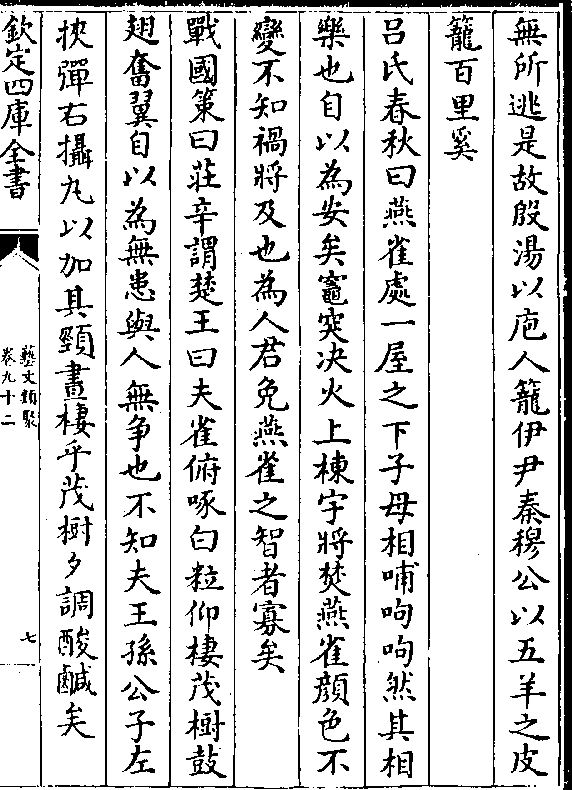 無所逃是故殷湯以庖人籠伊尹秦穆公以五羊之皮
籠百里奚
吕氏春秋曰燕雀處一屋之下子母相哺呴呴然其相
樂也自以為安矣竈突决火上棟宇將焚燕雀顔色不
變不知禍將及也為人君免燕雀之智者寡矣
戰國策曰莊辛謂楚王曰夫雀俯啄白粒仰棲茂樹鼓
翅奮翼自以為無患與人無争也不知夫王孫公子左
挾彈右攝丸以加其頸晝棲乎茂樹夕調酸鹹矣
欽定四庫全書
藝文類聚
卷九十二
七